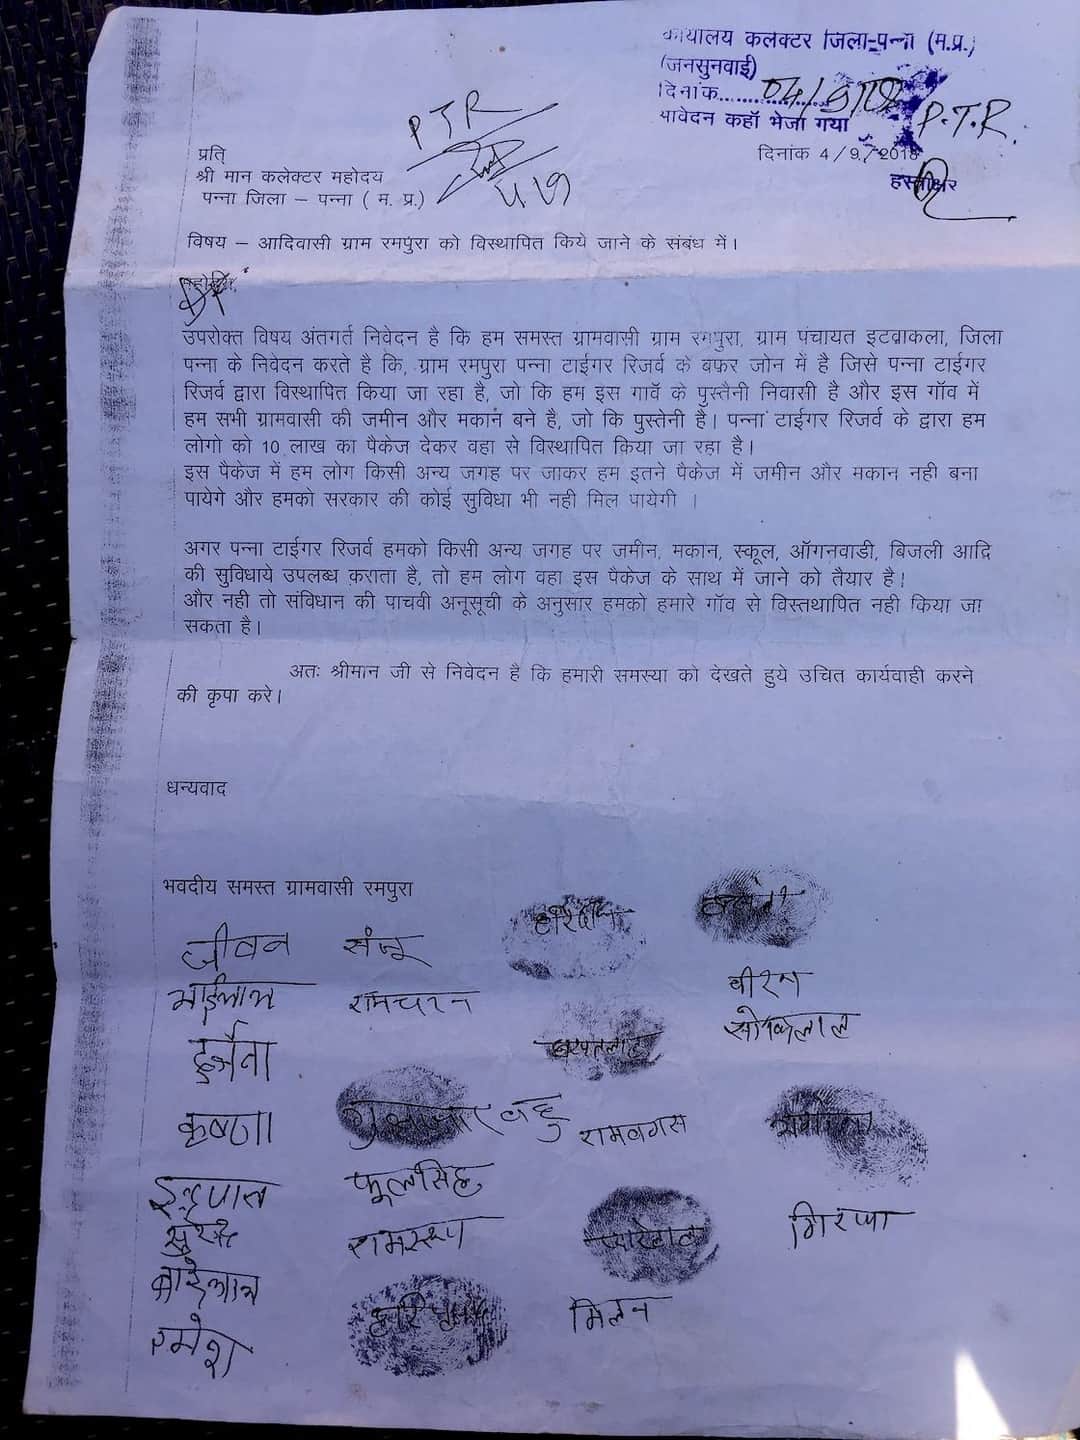 कार्यालय कलक्टर जिला-पन्ना (म.प्र.)
(जनसुनवाई)
दिनांक
आवेदन कहॉ भेजा गया
P.T.R.
P T R
दिनांक 4/9/2018
हस्ताक्षर
प्रति
श्री मान कलेक्टर महोदय
पन्ना जिला – पन्ना ( म. प्र.)
विषय – आदिवासी ग्राम रमपुरा को विस्थापित किये जाने के संबंध में।
उपरोक्त विषय अंतगर्त निवेदन है कि हम समस्त ग्रामवासी ग्राम रमपुरा, ग्राम पंचायत इटवाकला, जिला
पन्ना के निवेदन करते है कि, ग्राम रमपुरा पन्ना टाईगर रिजर्व के बफर जोन में है जिसे पन्ना टाईगर
रिजर्व द्वारा विस्थापित किया जा रहा है, जो कि हम इस गावॅ के पुस्तैनी निवासी है और इस गॉव में
हम सभी ग्रामवासी की जमीन और मकान बने है, जो कि पुस्तेनी है। पन्ना टाईगर रिजर्व के द्वारा हम
लोगो को 10 लाख का पैकेज देकर वहा से विस्थापित किया जा रहा है।
इस पैकेज में हम लोग किसी अन्य जगह पर जाकर हम इतने पैकेज में जमीन और मकान नही बना
पायेगे और हमको सरकार की कोई सुविधा भी नही मिल पायेगी ।
अगर पन्ना टाईगर रिजर्व हमको किसी अन्य जगह पर जमीन, मकान, स्कूल, ऑगनवाडी, बिजली आदि
की सुविधाये उपलब्ध कराता है, तो हम लोग वहा इस पैकेज के साथ में जाने को तैयार है।
और नही तो संविधान की पाचवी अनूसूची के अनुसार हमको हमारे गॉव से विस्तथापित नही किया जा
सकता है।
अतः श्रीमान जी से निवेदन है कि हमारी समस्या को देखते हुये उचित कार्यवाही करने
की कृपा करे।
धन्यवाद
भवदीय समस्त ग्रामवासी रमपुरा
जीवन संजू
रामचरन वीरन
दुर्जना
कृष्णा रामवगस
फूलसिंह
रामस्रूप
मिलन
रमेश